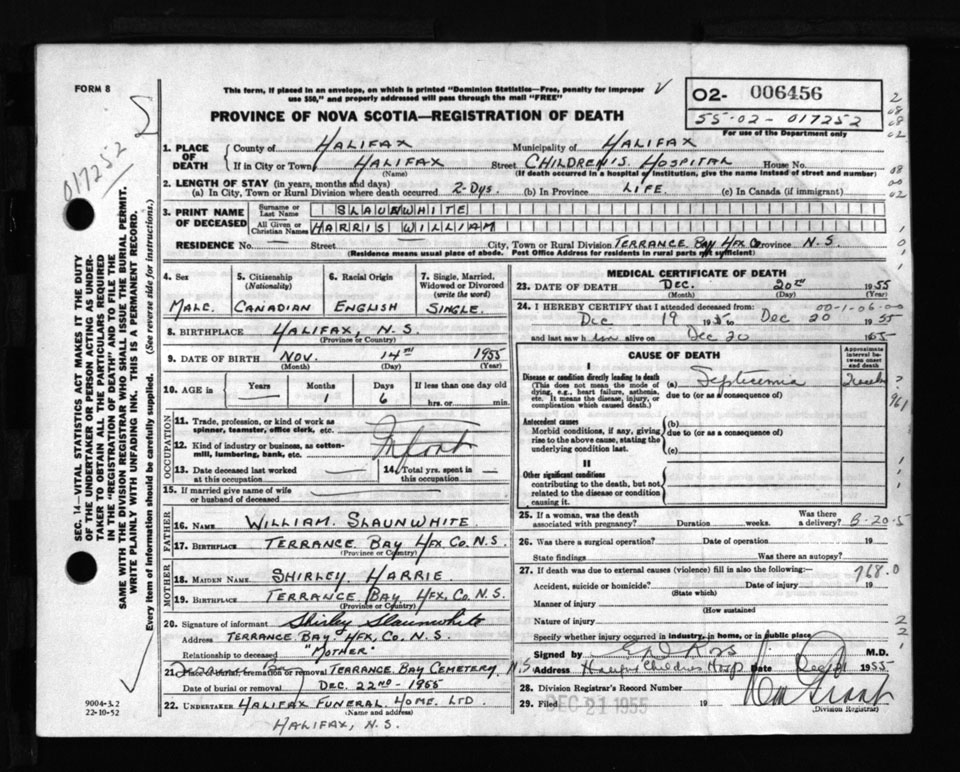 FORM 8
This form, if placed in an envelope, on which is printed "Dominion Statistics—Free, penalty for improper
use $50," and properly addressed will pass through the mail "FREE"
PROVINCE OF NOVA SCOTIA—REGISTRATION OF DEATH
O2- 006456
55-02-017252
For use of the Department only
017252
SEC. 14—VITAL STATISTICS ACT MAKES IT THE DUTY
OF THE UNDERTAKER OR PERSON ACTING AS UNDER-
TAKER TO OBTAIN ALL THE PARTICULARS REQUIRED
IN THE "REGISTRATION OF DEATH" AND TO FILE THE
SAME WITH THE DIVISION REGISTRAR WHO SHALL ISSUE THE BURIAL PERMIT.
WRITE PLAINLY WITH UNFADING INK. THIS IS A PERMANENT RECORD.
Every item of information should be carefully supplied. (See reverse side for instructions.)
1. PLACE OF DEATH
County of HALIFAX Municipality of HALIFAX
If in City or Town HALIFAX Street CHILDREN'S HOSPITAL House No.
(Name) (If death occurred in a hospital or institution, give the name instead of street and number)
2. LENGTH OF STAY (in years, months and days)
(a) In City, Town or Rural Division where death occurred 2-Dys. (b) In Province LIFE (c) In Canada (if immigrant)
3. PRINT NAME OF DECEASED
Surname or Last Name SLAUNWHITE
All Given or Christian Names HARRIS WILLIAM
RESIDENCE No. — Street — City, Town or Rural Division TERRANCE BAY HFX Co Province N.S.
(Residence means usual place of abode. Post Office Address for residents in rural parts not sufficient)
4. Sex MALE
5. Citizenship (Nationality) CANADIAN
6. Racial Origin ENGLISH
7. Single, Married, Widowed or Divorced (write the word) SINGLE
8. BIRTHPLACE HALIFAX, N.S.
(Province or Country)
9. DATE OF BIRTH NOV. 14TH 1955
(Month) (Day) (Year)
10. AGE in — Years 1 Months 6 Days If less than one day old
hrs. or min.
OCCUPATION
11. Trade, profession, or kind of work as
spinner, teamster, office clerk, etc.
12. Kind of industry or business, as cotton-
mill, lumbering, bank, etc.
Infant
13. Date deceased last worked
at this occupation
14. Total yrs. spent in
this occupation
15. If married give name of wife
or husband of deceased
FATHER
16. NAME WILLIAM SLAUNWHITE
17. BIRTHPLACE TERRANCE BAY HFX Co. N.S.
(Province or Country)
MOTHER
18. MAIDEN NAME SHIRLEY HARRIE
19. BIRTHPLACE TERRANCE BAY, HFX, Co. N.S.
(Province or Country)
20. Signature of informant Shirley Slaunwhite
Address TERRANCE BAY HFX, Co. N.S.
Relationship to deceased "MOTHER"
21. Place of burial, cremation or removal TERRANCE BAY CEMETERY N.S.
Date of burial or removal DEC. 22ND - 1955
22. UNDERTAKER HALIFAX FUNERAL HOME LTD
(Name and address)
HALIFAX, N.S.
9004-3.2
22-10-52
MEDICAL CERTIFICATE OF DEATH
23. DATE OF DEATH DEC. 20TH 1955
(Month) (Day) (Year)
24. I HEREBY CERTIFY that I attended deceased from: 00-1-06-00
Dec 19 1955 to Dec 20 1955
and last saw him alive on Dec 20 1955
CAUSE OF DEATH
Approximate interval between onset and death
I
Disease or condition directly leading to death
(This does not mean the mode of
dying, e.g., heart failure, asthenia,
etc. It means the disease, injury, or
complication which caused death.)
(a) Septicemia
due to (or as a consequence of)
Antecedent causes
Morbid conditions, if any, giving
rise to the above cause, stating the
underlying condition last.
(b)
due to (or as a consequence of)
(c)
II
Other significant conditions
contributing to the death, but not
related to the disease or condition
causing it.
25. If a woman, was the death
associated with pregnancy? Duration weeks. Was there
a delivery? B-20-5
26. Was there a surgical operation? Date of operation 19
State findings Was there an autopsy?
27. If death was due to external causes (violence) fill in also the following:— 768.0
Accident, suicide or homicide? Date of injury 19
(State which)
Manner of injury
(How sustained
Nature of injury
Specify whether injury occurred in industry, in home, or in public place
Signed by Ross M.D.
Address Halifax Childrens Hosp Date Dec 21 1955
28. Division Registrar's Record Number
29. Filed DEC 21 1955 19
(Division Registrar)